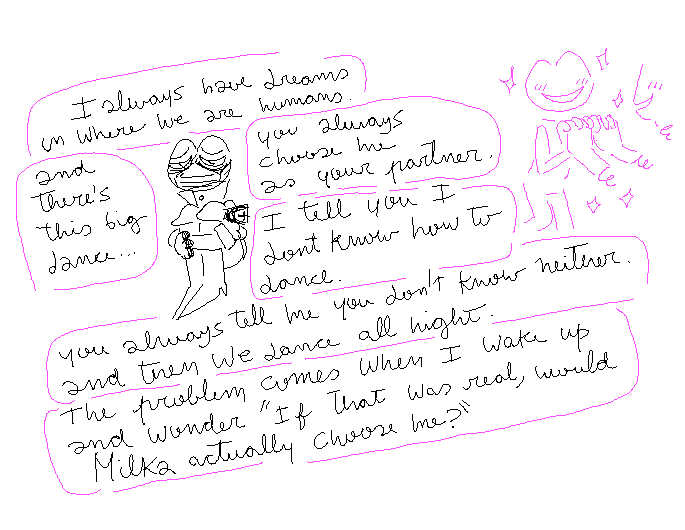 I always have dreams
in where we are humans.
and
there's
this big
dance...
you always
choose me
as your partner.
I tell you I
dont know how to
dance.
you always tell me you don't know neither.
and then we dance all night.
The problem comes when I wake up
and wonder "If that was real, would
Milka actually choose me?"